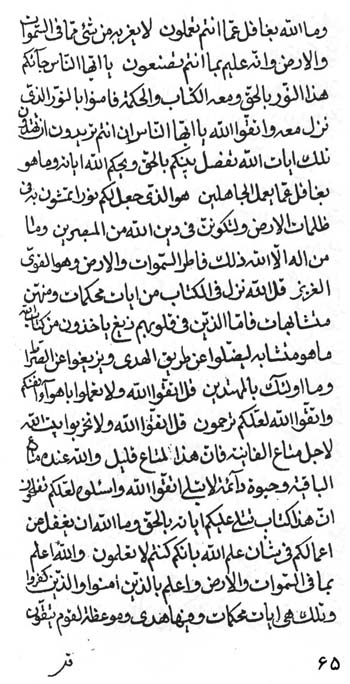 وما الله بغافل عما انتم تعملون لا يعزب من شئ مما في السموات
والارض وانه عليم بما انتم تصنعون يا ايها الناس جائكم
هذا النور بالحق ومعه الكتاب والحكمة فامنوا بالنور الذي
نزل معه واتقوا الله يا ايها الناس ان انتم تريدون ان تهتدون
تلك ايات الله تفصل بينكم بالحق ويحكم الله اياته وما هو
بغافل عما يعمل الجاهلين هو الذي جعل لكم نورا تمشون به في
ظلمات الارض ولتكونن في دين الله من المبصرين وما
من اله الا الله ذلك فاطر السموات والارض وهو القوي
العزيز قل الله نزل في الكتاب من ايات محكمات ومنهن
متشابهات فاما الذين في قلوبهم زيغ ياخذون من كتاب الله
ما هو متشابه ليضلوا عن طريق الهدى ويزيغوا عن الصراط
وما اولئك بالمهتدين قل اتقوا الله ولا تعملوا باهواء انفسكم
واتقوا الله لعلكم ترحمون قل اتقوا الله ولا تخربوا بيت الله
لاجل متاع الفانية فان هذا لمتاع قليل والله عنده متاع
الباقية وحيوة دائمة لا تبلى اتقوا الله واسئلوه لعلكم تفلحون
ان هذا كتاب نتلى عليكم اياته بالحق وما الله ان يغفل من
اعمالكم في شان علم الله بانكم كنتم لا تعلمون والله اعلم
بما في السموات والارض واعلم بالذين امنوا والذين كفروا
وتلك هي ايات محكمات وفيها هدى وموعظة لقوم يتقون
٦٥